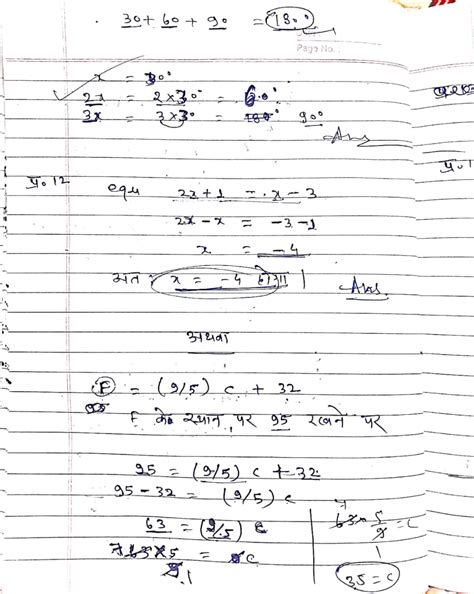 30 + 60 + 90 = 180
Page No.
x = 30°
2x = 2×30° = 60°
3x = 3×30° = 90°
Ans
प्र० 12 equ 2x + 1 = x - 3
2x - x = -3 -1
x = -4
अतः x = -4 होगा | Ans.
अथवा
F = (9/5) c + 32
F के स्थान पर 95 रखने पर
95 = (9/5) c + 32
95 - 32 = (9/5) c
63 = (9/5) c
63×5 = 9c
63 × 5/9 = c
35 = c